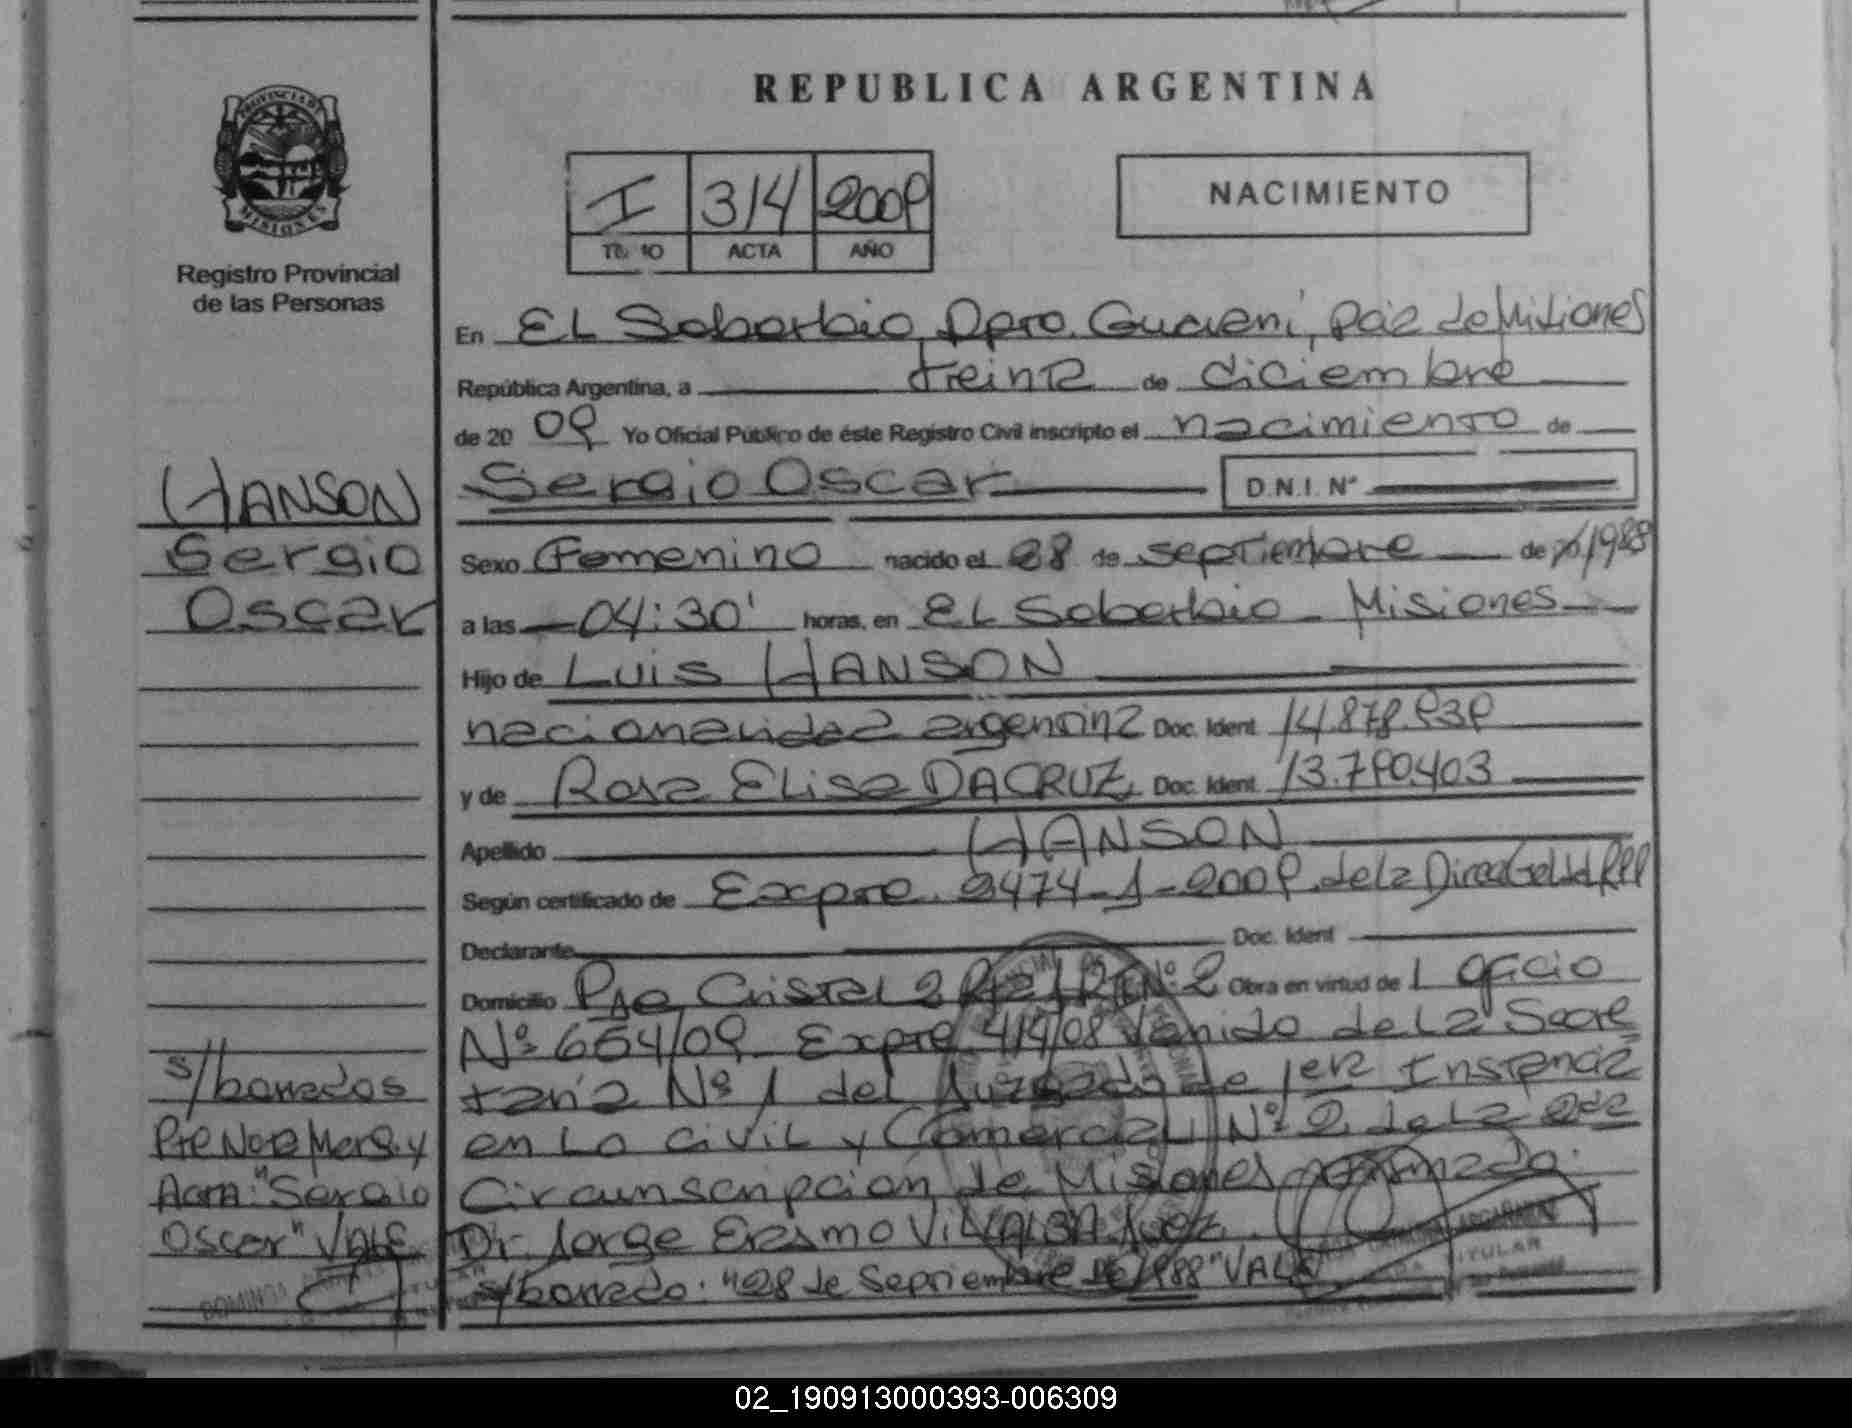 REPUBLICA ARGENTINA
PROVINCIA D
MISIONES
Registro Provincial
de las Personas
I 314 2009
TOMO ACTA AÑO
NACIMIENTO
En EL Soberbio, Dpto. Guaraní, Pcia de Misiones
República Argentina, a treinta de diciembre
de 20 09 Yo Oficial Público de éste Registro Civil inscripto el nacimiento de
HANSON
Sergio
Oscar
Sergio Oscar D.N.I. N°
Sexo Femenino nacido el 28 de septiembre de 1988
a las 04:30' horas, en EL Soberbio - Misiones
Hijo de Luis HANSON
nacionalidad argentina Doc. Ident. 14.878.939
y de Rosa Elisa DACRUZ Doc. Ident. 13.790.403
Apellido HANSON
Según certificado de Expte. 2474-1-2009. de la
Declarante Doc. Ident
Domicilio Pje Cristal 2 N° 2 Obra en virtud de 1 oficio
N° 654/09 Expte 414/08 Venido de la Secre
taría N° 1 del Juzgado de 1era Instancia
en Lo Civil y Comercial N° 2 de La 2da
Circunscripción de Misiones firmado:
Dr. Jorge Erasmo VILLALBA Juez.
s/borrado: "28 de Septiembre de 1988" VALE
s/borrados
Pte Nota Marg. y
Acta: "Sergio
Oscar" VALE
TITULAR
02_190913000393-006309